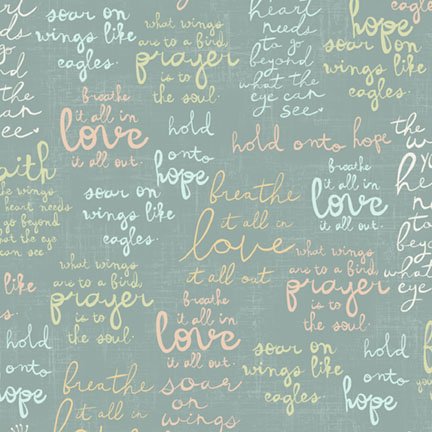 soar on
wings like
eagles.
what wings
are to a bird
prayer
is to
the soul.
heart
needs
to go
beyond
what the
eye can
see
hope
soar on
wings like
eagles.
eagles.
can
see
breathe
it all in
love
it all out.
hold
onto
hope
hold onto hope
the
wings
heart
needs
to go
beyond
what the
eye can
faith
the wings
heart needs
to go beyond
what the eye
can see
soar on
wings like
eagles.
breathe
it all in
love
it all out
breathe
it all in
love
it all out.
what wings
are to a bird
prayer
is to
the soul.
what wings
are to a bird
prayer
is to
the soul.
like
breathe
it all in
love
it all out.
hold
onto
hope
soar on
wings like
eagles.
hold
onto
hope
breathe
it all in
soar
on
wings